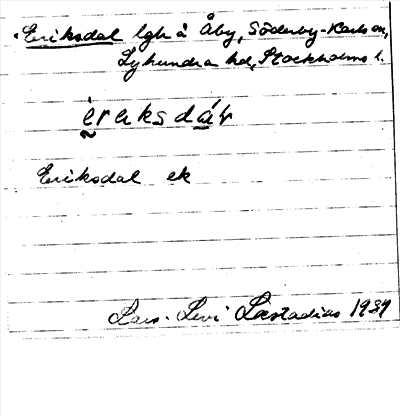 Eriksdal lgh å Åby, Söderby-Karls sn,
Lyhundra hd, Stockholms l.
èraksdáɫ
Eriksdal ek
Lars-Levi Læstadius 1939